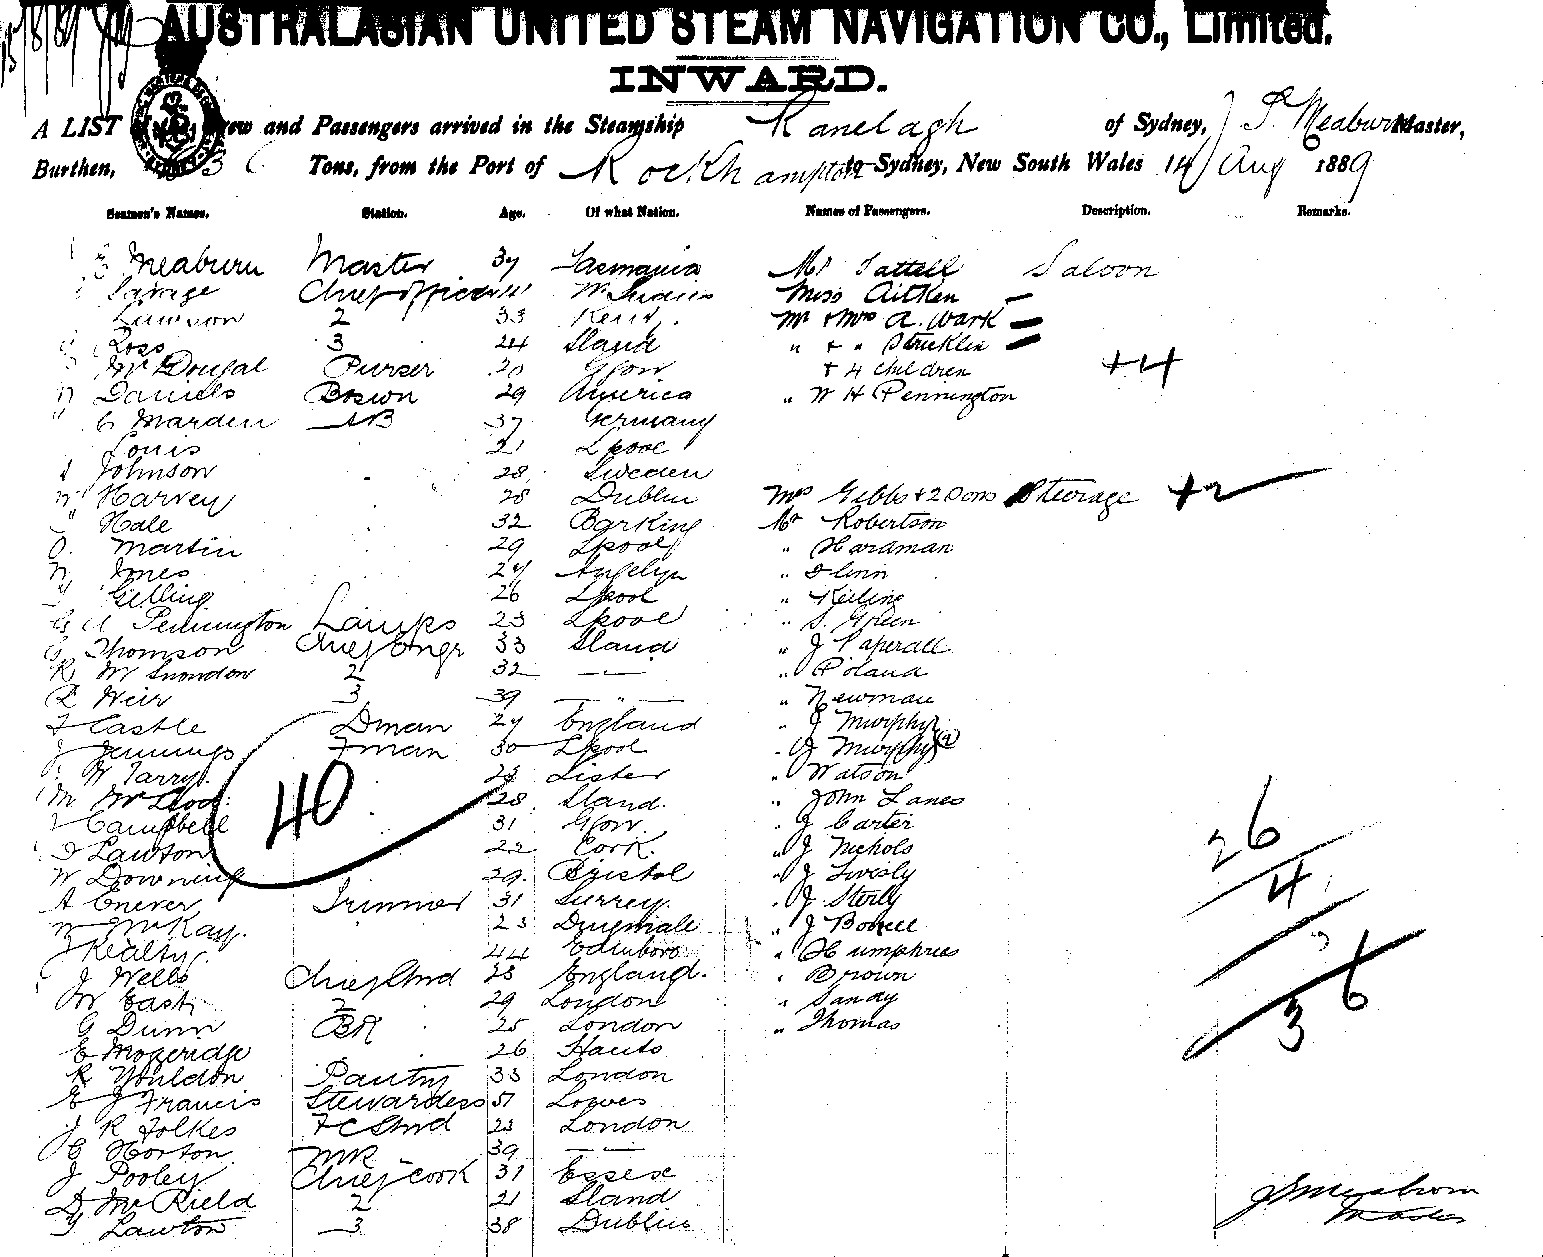 AUSTRALASIAN UNITED STEAM NAVIGATION CO., Limited.
INWARD.
A LIST Crew and Passengers arrived in the Steamship Ranelagh of Sydney, Meaburn Master,
Burthen, Tons, from the Port of Rockhampton to Sydney, New South Wales 14 Aug 1889
Seamen's Names. Station. Age. Of what Nation. Names of Passengers. Description. Remarks.
Meaburn Master 37 Tasmania Mr Tattell Saloon
Savage Chief officer W. Indies Miss Aitken
Lawson 2 33 Kent. Mr & Mrs A. Wark
Ross 3 24 Sland " & " Stricklin
McDougal Purser 20 Gow & 4 children +4
Daniels Bosun 29 America " W H Pennington
C Marden AB 37 Germany
Louis 21 Lpool
Johnson 28 Sweden
Harvey 28 Dublin Mrs Gibbs & 2 Sons Steerage +2
Hale 32 Barking Mr Robertson
Martin 29 Lpool " Hardman
Innes 27 " Flinn
Gelling 26 Lpool " Keeling
Pennington Lamps 23 Lpool " S. Green
Thomson Chief Engr 33 Sland " J Paperall
R McSnowdon 2 32 — " — " Poland
R Weir 3 39 — " — " Newman
F Castle Dman 27 England " J Murphy
J Jennings Fman 30 Lpool " J Murphy (2)
W Tarry 23 Lister " Watson
M McLeod 40 28 Sland. " John Lanes
Campbell 31 Gow. " J Carter 26
Lawton 22 Cork. " J Nichols
W Downing 29 Bristol " J 4
A Enever Trimmer 31 Surrey. " J Sterly
McKay. 23 " J
J Kealty 44 Edinboro " Humphries
J Wells Chief Stwd 28 England. " Brown
W East 2 29 London " Sandy 36
G Dunn BR 25 London " Thomas
E Mogeridge 26 Hants
R Youldon Pantry 33 London
E J Francis Stewardess 51 Lowes
J R Folkes FC Stwd 23 London
C Horton MR 39 — " —
J Pooley Chief cook 31 Essex
D McRield 2 21 Sland
Lawton 3 38 Dublin
Master